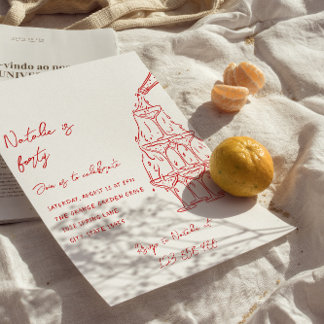 rvindo ao no
UNIVER
Natalie is
forty
Join us to celebrate
SATURDAY, AUGUST 12 AT 6PM
THE ORANGE GARDEN GROVE
1626 SPRING LANE
CITY STATE 12345
Rsvp to Natalie at
123 456 789